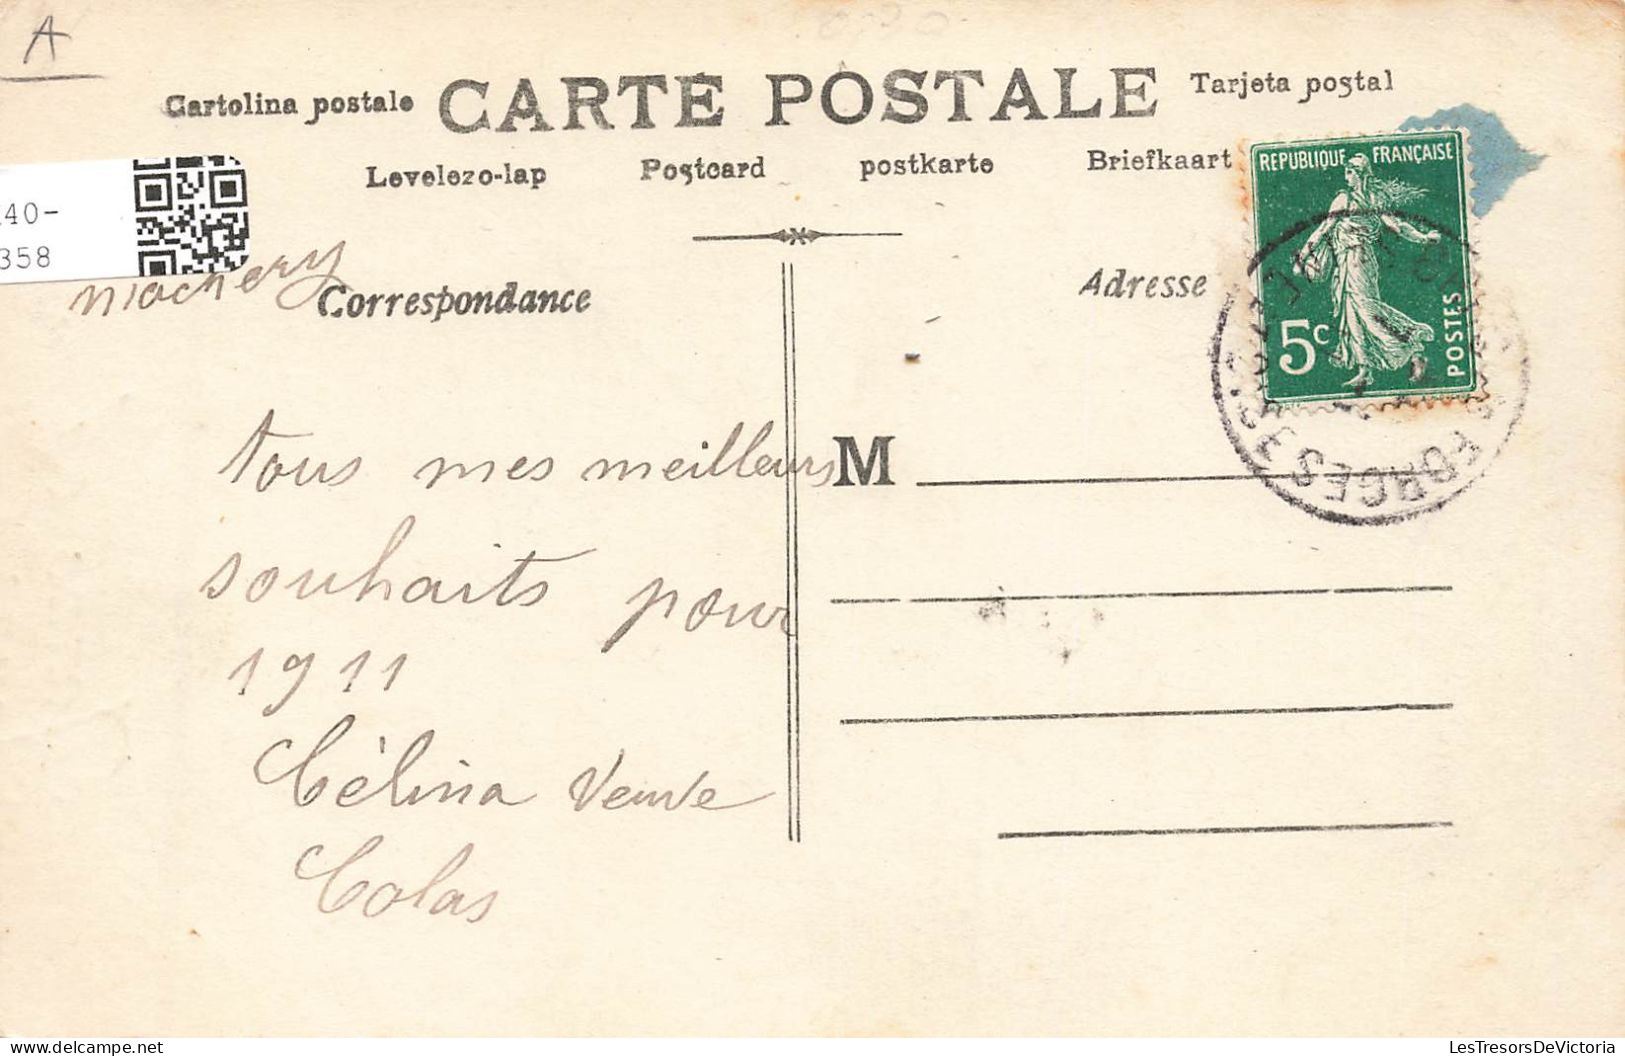 A
Cartolina postale CARTE POSTALE Tarjeta postal
Levelezo-lap Postcard postkarte Briefkaart
REPUBLIQUE FRANÇAISE
5c
POSTES
40-
358
Correspondance
Adresse
tous mes meilleurs
M
souhaits pour
1911
Cèlina Veuve
Colas
FORGES
LesTresorsDeVictoria
delcampe.net